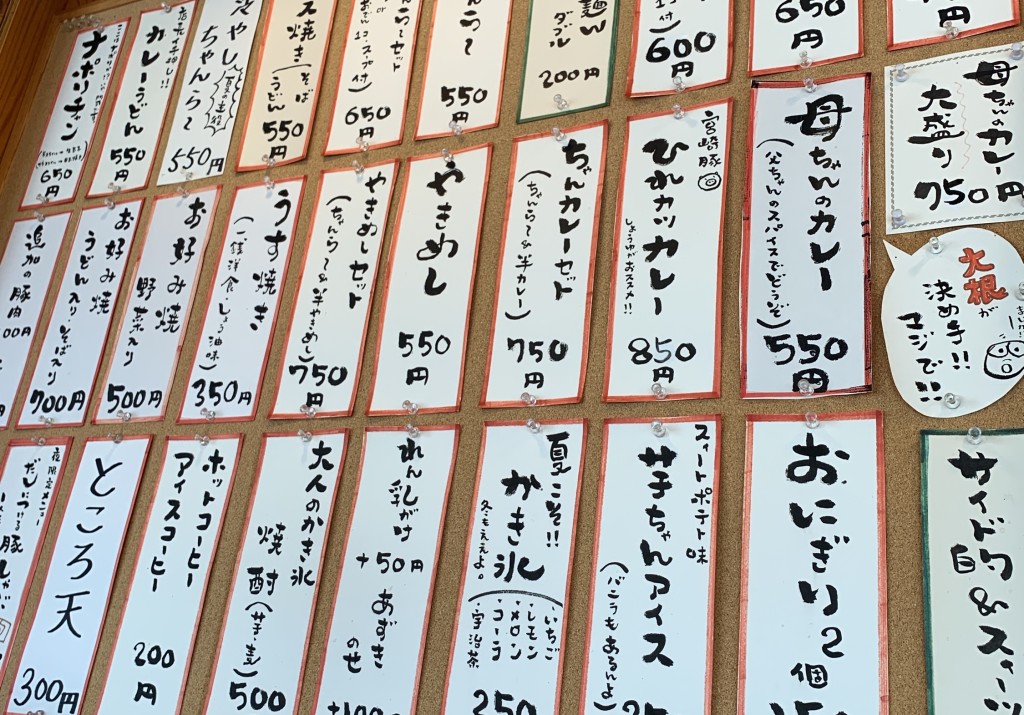 ナポリチャン
650
円
店長イチ押し!!
カレーうどん
550
円
冷やし
ちゃんらー
夏の主役
550円
ス焼き
そば
うどん
550
円
セット
650
円
550
円
麺
ダブル
200円
600
円
650
円
円
母ちゃんの
カレー
大盛り
750円
追加の
豚肉
お好み焼
うどん入り・そば入り
700円
お好み焼
野菜入り
500円
うす焼き
(一銭洋食・しょう油味)
350円
やきめしセット
(ちゃんらー&半やきめし)
750
円
やきめし
550
円
ちゃんカレーセット
(ちゃんらー&半カレー)
750
円
宮崎豚
ひれカツカレー
しょうゆがおススメ!!
850
円
母ちゃんのカレー
(父ちゃんのスパイスでどうぞ)
550
円
大根が
決め手!!
マジで!!
夜限定メニュー
ところ天
300円
ホットコーヒー
アイスコーヒー
200
円
大人のかき氷
焼酎(芋・麦)
500
れん乳がけ
+50円
あずき
のせ
夏こそ!!
かき氷
冬もええよ。
・いちご
・レモン
・メロン
・コーラ
・宇治茶
250
スイートポテト味
芋ちゃんアイス
(バニラもあるんよ)
おにぎり2
個
サイド的
&スイーツ